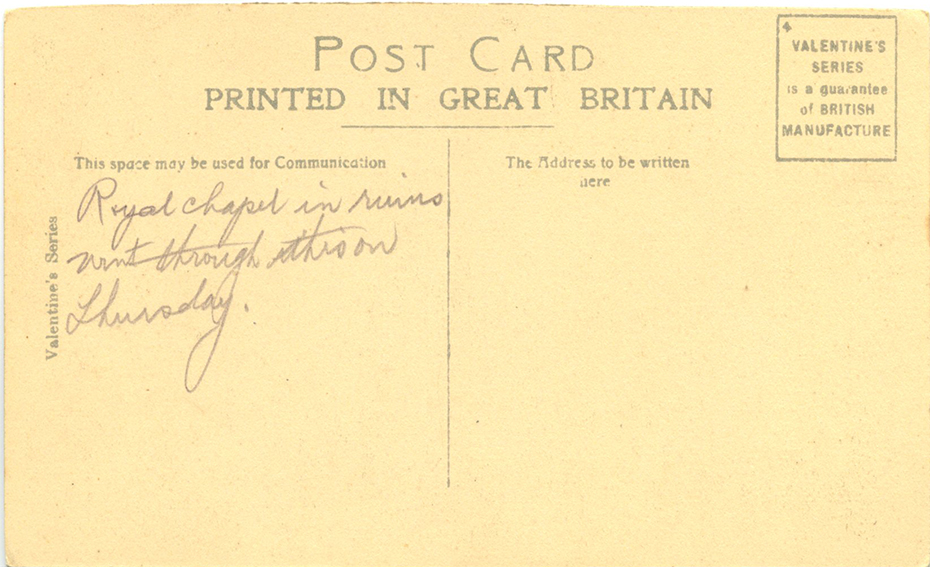 POST CARD
PRINTED IN GREAT BRITAIN
VALENTINE'S
SERIES
is a guarantee
of BRITISH
MANUFACTURE
This space may be used for Communication
The Address to be written
here
Valentine's Series
Royal chapel in ruins
went through this on
Thursday.